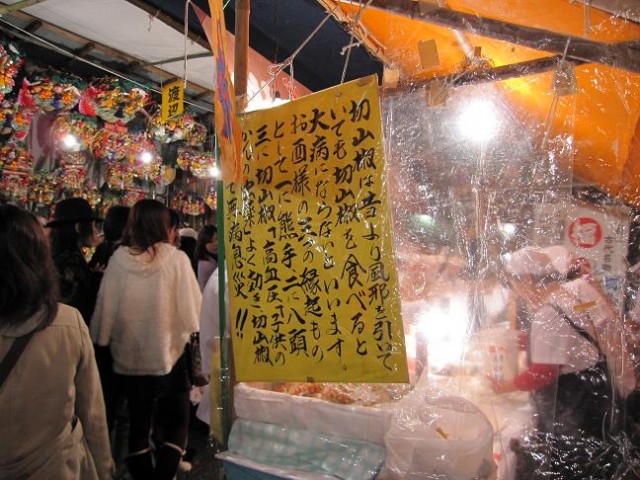 切山椒は昔より風邪を引いて
いても切山椒を食べると
大病にならないといいます。
お酉様の三つの縁起もの
として一に熊手二に八頭
三に切山椒 高血圧子供の
よく効き切山椒
息災!!
渡辺